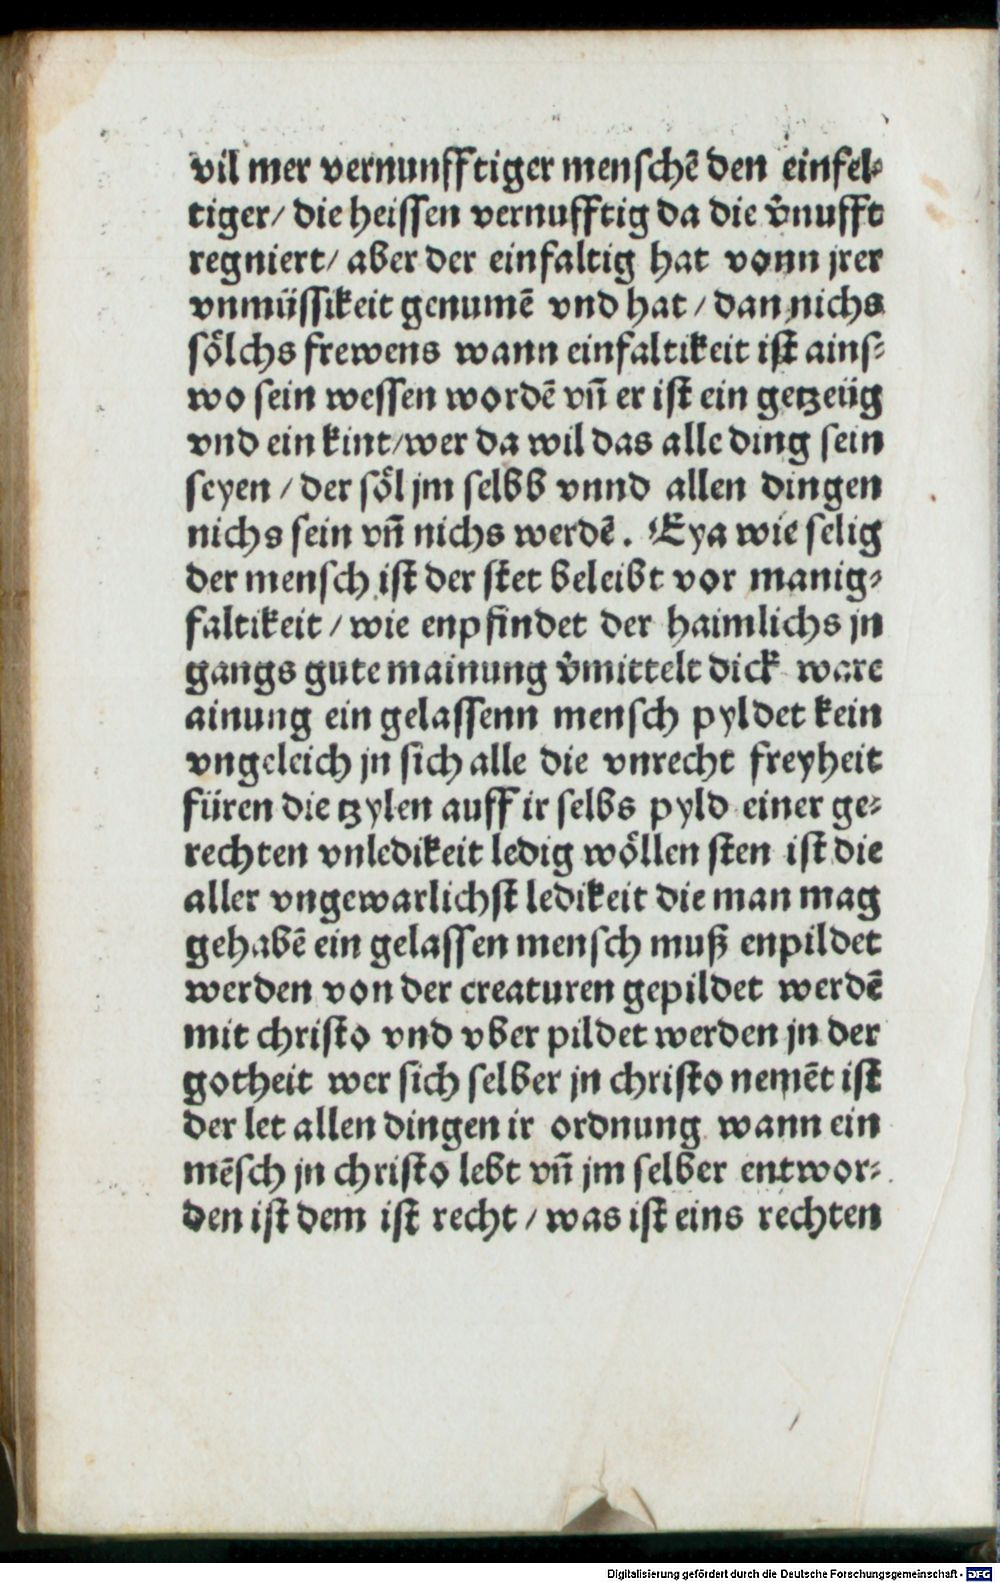 vil mer vernunfftiger menschē den einfel⸗
tiger/ die heissen vernufftig da die v̄nufft
regniert/ aber der einfaltig hat vonn jrer
vnmüssikeit genumē vnd hat / dan nichs
sölchs frewens wann einfaltikeit ist ains⸗
wo sein wessen wordē vn̄ er ist ein getzeüg
vnd ein kint/wer da wil das alle ding sein
seyen / der söl jm selbb vnnd allen dingen
nichs sein vn̄ nichs werdē. Eya wie selig
der mensch ist der stet beleibt vor manig⸗
faltikeit / wie enpfindet der haimlichs jn
gangs gute mainung v̄mittelt dick ware
ainung ein gelassenn mensch pyldet kein
vngeleich jn sich alle die vnrecht freyheit
füren die tzylen auff ir selbs pyld einer ge⸗
rechten vnledikeit ledig wöllen sten ist die
aller vngewarlichst ledikeit die man mag
gehabē ein gelassen mensch muß enpildet
werden von der creaturen gepildet werdē
mit christo vnd vber pildet werden jn der
gotheit wer sich selber jn christo nemēt ist
der let allen dingen ir ordnung wann ein
mēsch jn christo lebt vn̄ jm selber entwor⸗
den ist dem ist recht / was ist eins rechten
Digitalisierung gefördert durch die Deutsche Forschungsgemeinschaft - DFG